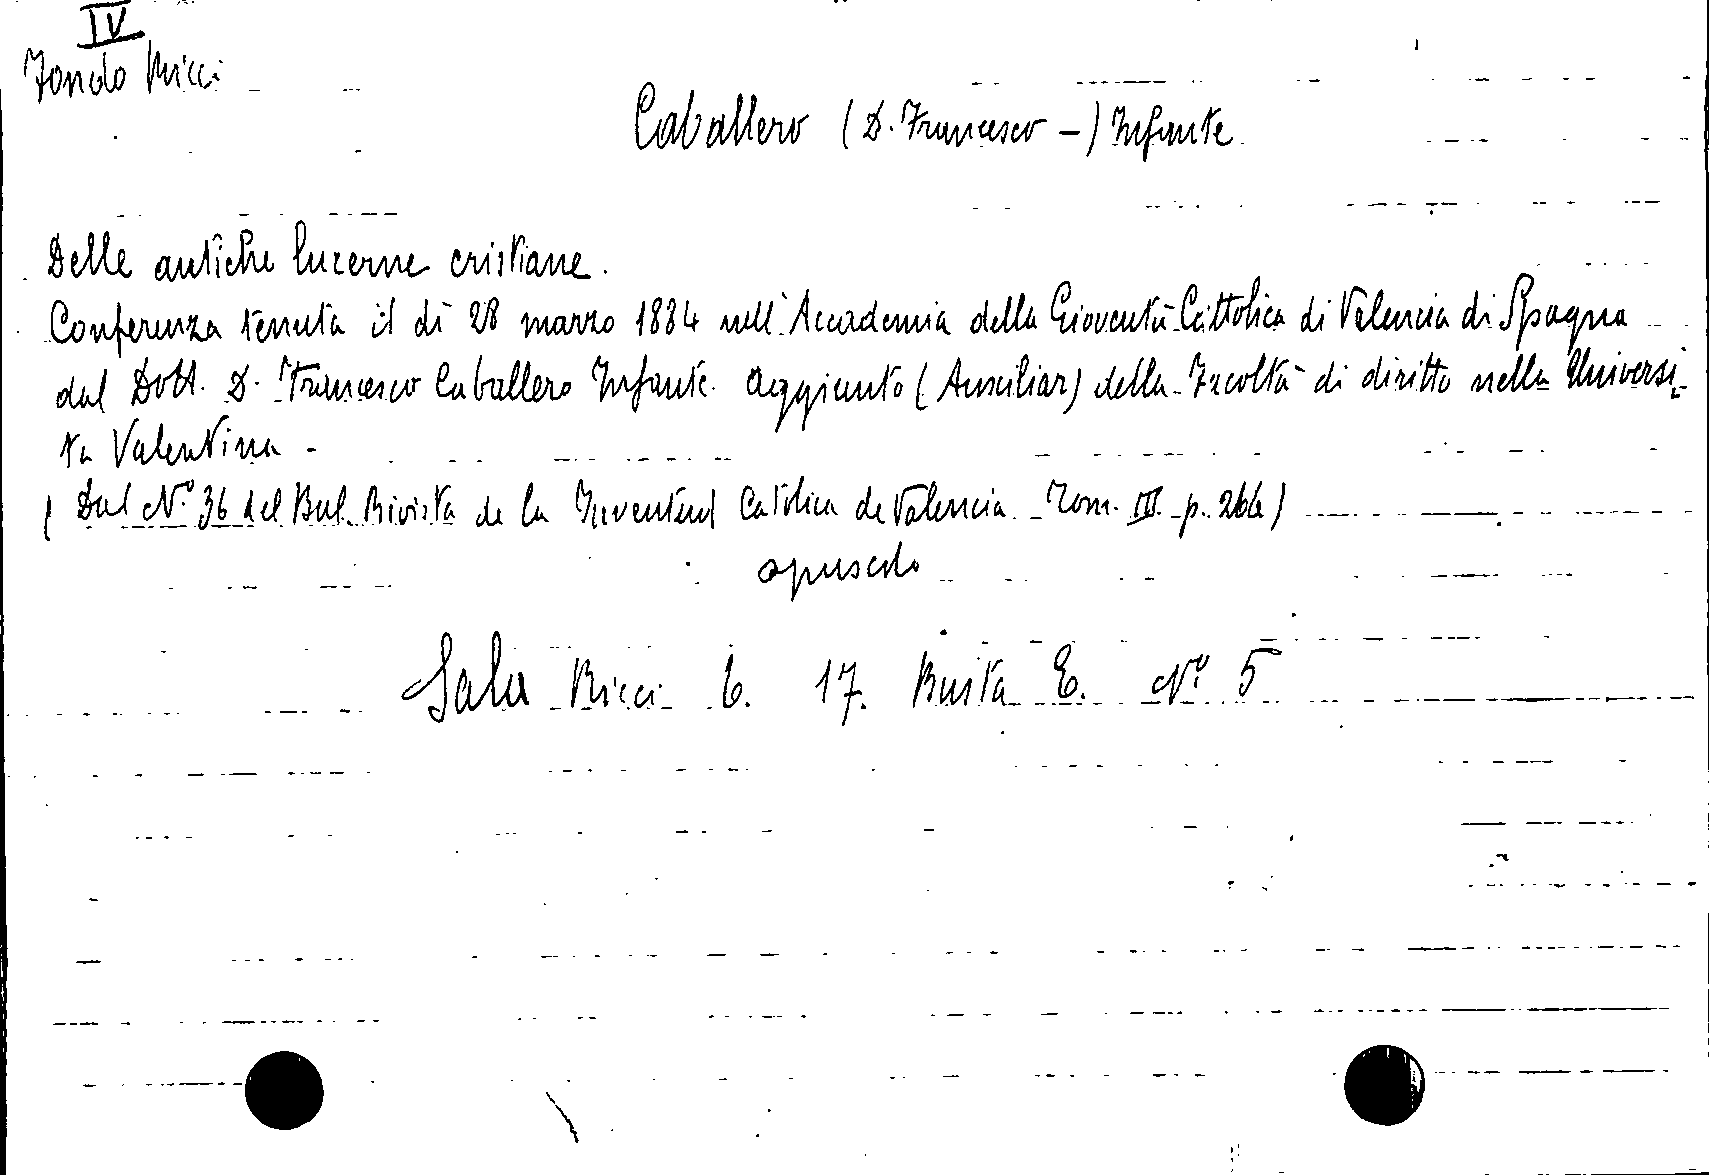 IV
Fondo Ricci
Caballero (D. Francesco -) Infante
Delle antiche lucerne cristiane.
Conferenza tenuta il dì 28 marzo 1884 nell'Accademia della Gioventù Cattolica di Valencia di Spagna
dal Dott. D. Francesco Caballero Infante. Aggiunto (Auxiliar) della Facoltà di diritto nella Universi-
tà Valentina -
(Dal N° 36 del Bul. Rivista de la Juventud Catolica de Valencia Tom. III p. 266)
opuscolo
Sala Ricci 6. 17. Busta E. N° 5